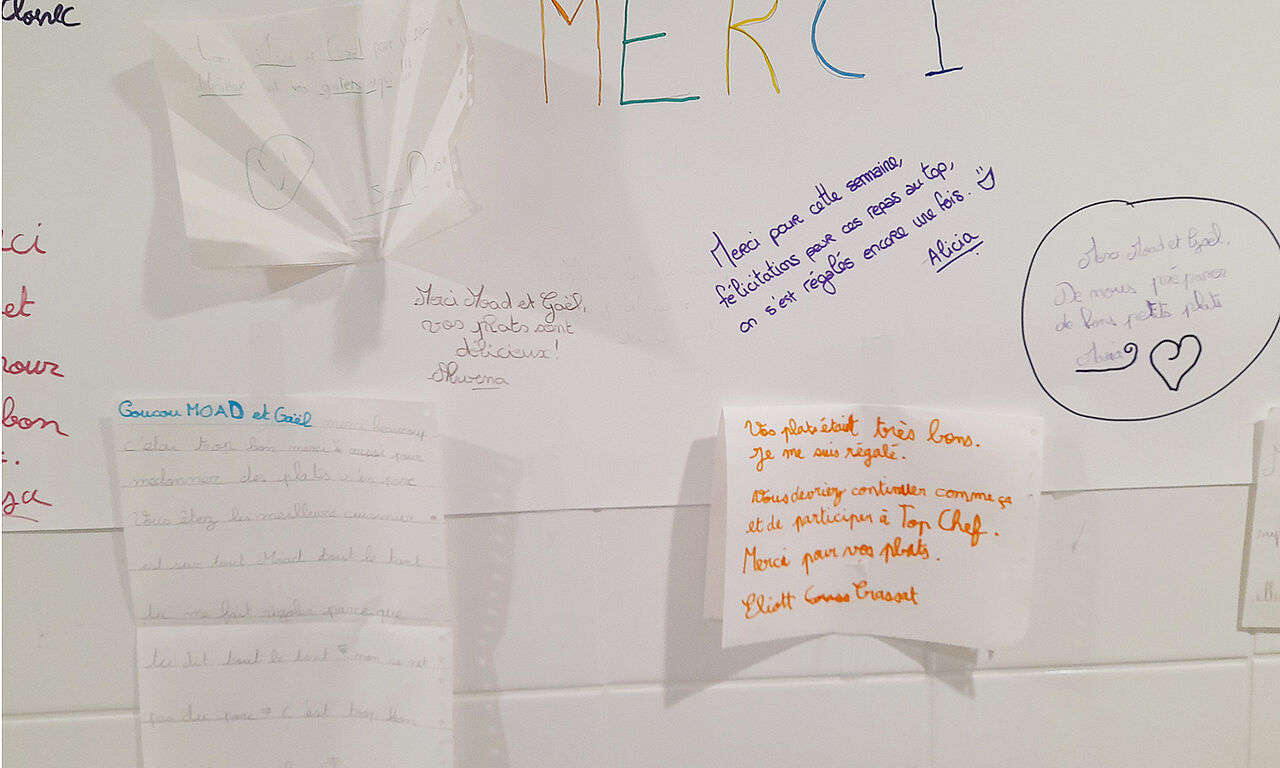 MERCI
et
Gaël pour
délicieux et vos
Merci pour cette semaine,
félicitations pour ces repas au top,
on s'est régalés encore une fois.
Alicia
Moad et Gaël,
De nous préparer
de bons petits plats
Merci Moad et Gaël,
vos plats sont
délicieux!
rci
et
pour
bon
Coucou MOAD et Gaël merci beaucoup
c'étai trop bon merci aussi pour
medonner des plats s'en porc
Vous êtez les meilleurs cuisinier
est sur tout Moad tout le tant
tu me fait rigoler parce que
tu dit tout le tant non se net
pas du porc c'est trop bon
Vos plats était très bons.
Je me suis régalé.
Vous devriez continuer comme ça
et de participer à Top Chef.
Merci pour vos plats.
Eliott Crassat